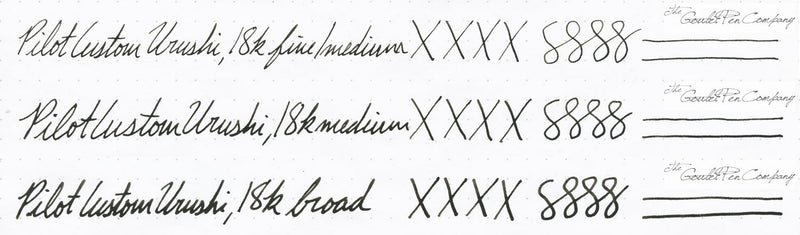 Pilot Custom Urushi, 18k fine/medium XXXX 8888 The Goulet Pen Company
Pilot Custom Urushi, 18k medium XXXX 8888 The Goulet Pen Company
Pilot Custom Urushi, 18k broad XXXX 8888 The Goulet Pen Company